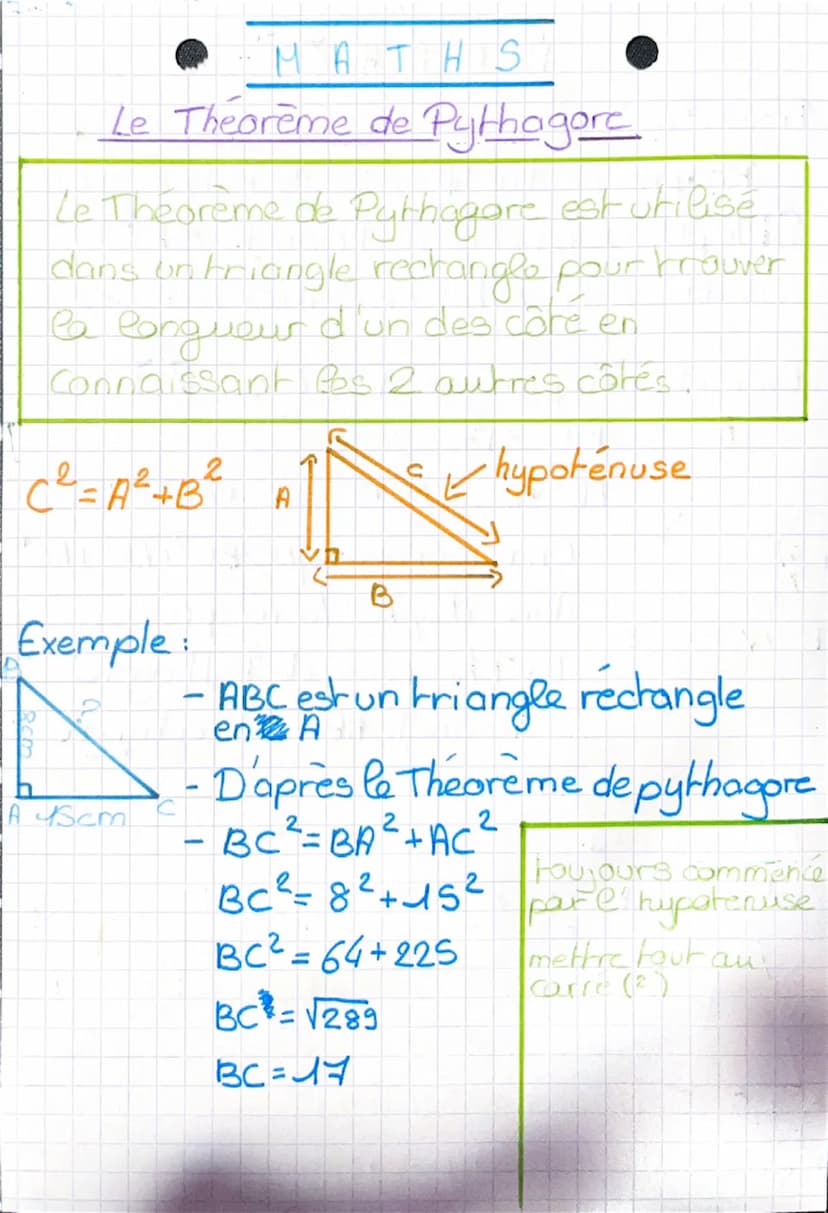 MATHS
Le Théorème de Pythagore
Le Théorème de Pythagore est utilisé
dans un triangle rectangle pour trouver
la longueur d'un des côté en
connaissant les 2 autres côtés.
C² = A² + B²
A
C
hypoténuse
B
Exemple :
B
8cm
?
A 15cm C
- ABC est un triangle réctangle
en A
- D'après le Théorème de pythagore
- BC² = BA² + AC²
BC² = 8² + 15²
BC² = 64 + 225
BC = √289
BC = 17
toujours commencé
par l'hypotenuse
mettre tout au
carré (²)